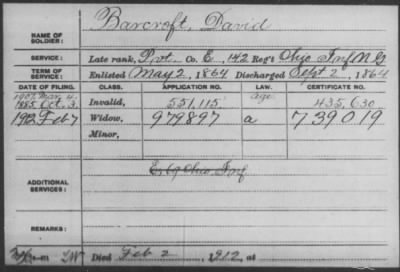 Barcroft, David
NAME OF SOLDIER:
SERVICE: Late rank, Pvt. Co. E, 142 Reg't Ohio Inf N G
TERM OF SERVICE: Enlisted May 2, 1864 Discharged Sept 2, 1864
DATE OF FILING. CLASS. APPLICATION NO. LAW. CERTIFICATE NO.
1907 Mar. 4 age
1885. Oct. 3. Invalid, 551,115. 435,630
1912 Feb 7 Widow, 979897 a 739019
Minor,
E. 69 Ohio Inf
ADDITIONAL SERVICES:
REMARKS:
Died Feb 2, 1912, at